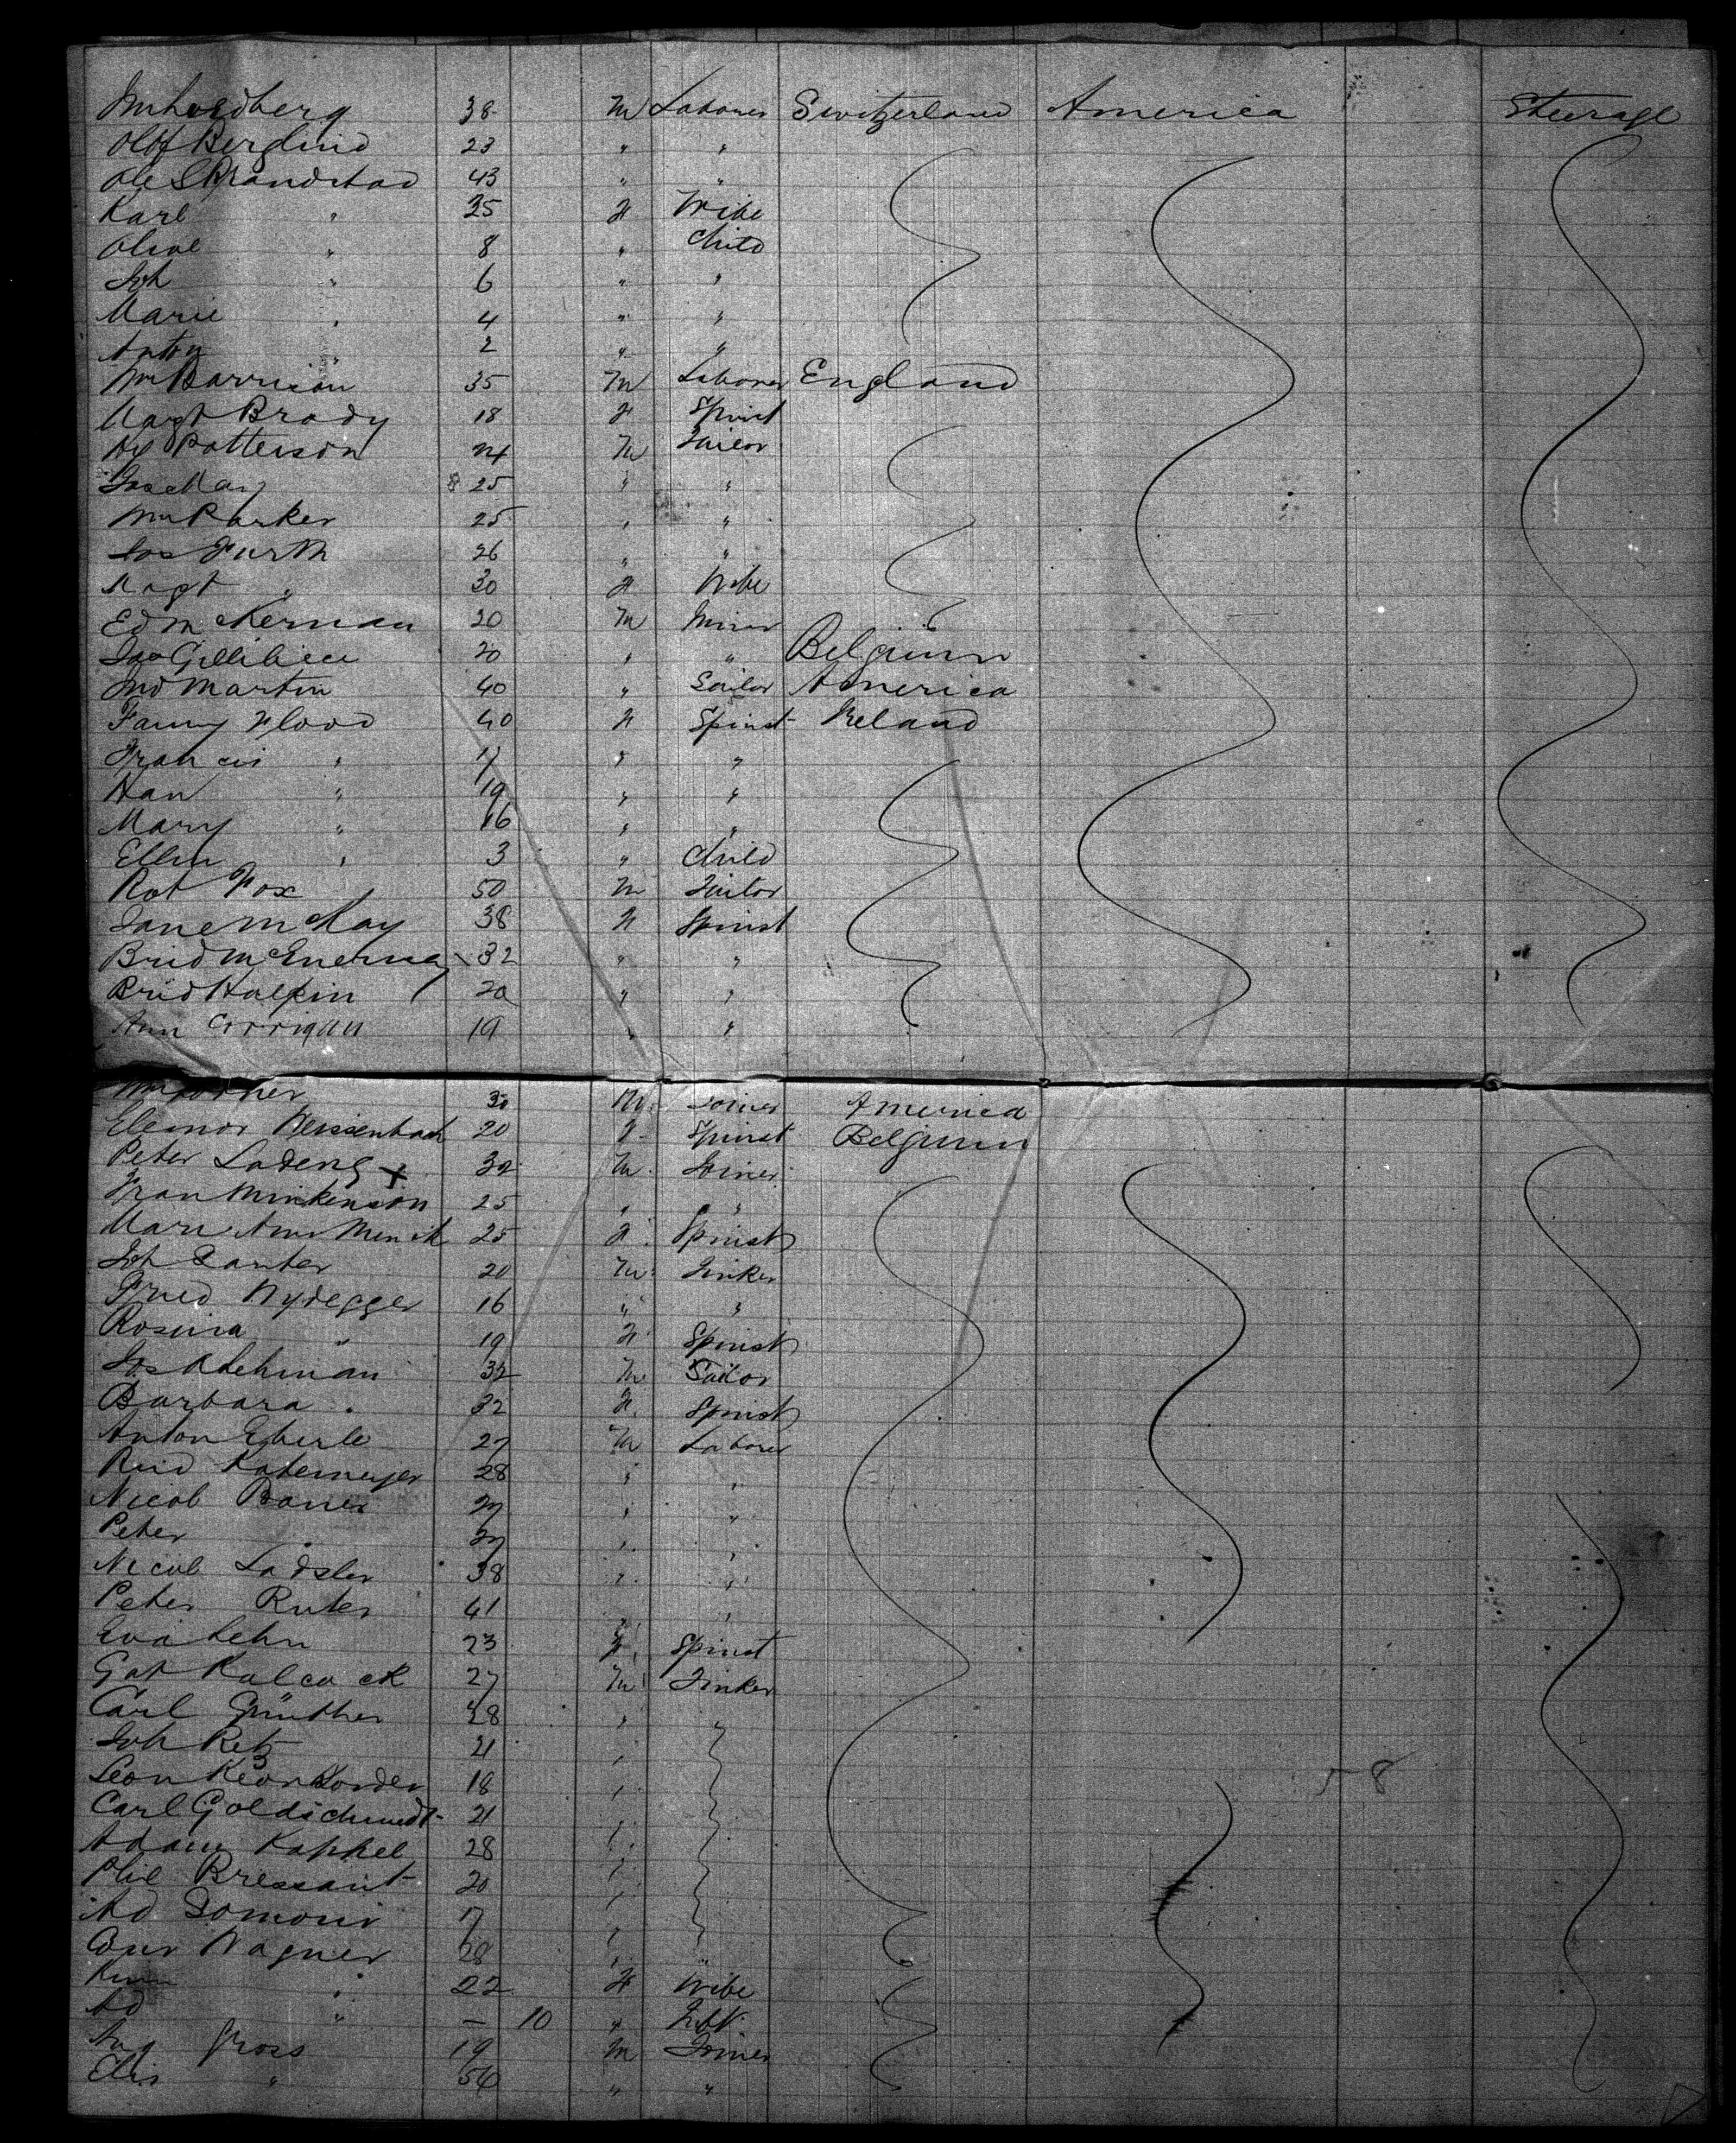 38 M Laborer Switzerland America Steerage
Olof Berglind 23 " "
Ole S 43 " "
Karl " 35 F Wife
Olive " 8 " Child
Joh " 6 " "
Marie " 4 " "
Anton " 2 " "
Wm Harrison 35 M Laborer England
Magt Brady 18 F Spinst
Patterson 24 M Tailor
25 " "
Wm Parker 25 " "
Jos Furth 26 " "
Magt " 30 F Wife
Ed McKernan 20 M Miner
20 " " Belgium
Jno Martin 40 " Sailor America
Fanny Flood 40 F Spinst Ireland
Francis " 17 " "
Han " 19 " "
Mary " 16 " "
Ellen " 3 " Child
Rot Fox 50 M Tailor
Jane McKay 38 F Spinst
Brid McEnerney 32 " "
Brid Halpin 20 " "
Ann Corrigan 19 " "
Wm 30 M Joiner America
Eleonor Weissenbach 20 F Spinst Belgium
Peter Ladeng x 32 M Joiner
Fran Minkenson 25 " "
Marie Ann 25 F Spinst
Joh 20 M Tinker
Fried Nydegger 16 " "
Rosina " 19 F Spinst
Jos A Lehman 32 M Tailor
Barbara " 32 F Spinst
Anton Eberle 27 M Laborer
28 " "
Nicol Bauer 27 " "
Peter " 27 " "
Nicol Ladsler 38 " "
Peter Ruter 41 " "
Eva Lehn 23 F Spinst
Got Kalcack 27 M Tinker
Carl Günther 28 " "
Joh Retz 21 "
Leon 18 " 58
Carl Goldschmidt 21 "
Adam Kappel 28 "
Phil Bressant 20 "
Ad 17 "
Wagner 28 " "
" 22 F Wife
Ad " — 10 " Inft
Aug Gross 19 M Joiner
Elis " 56 " "